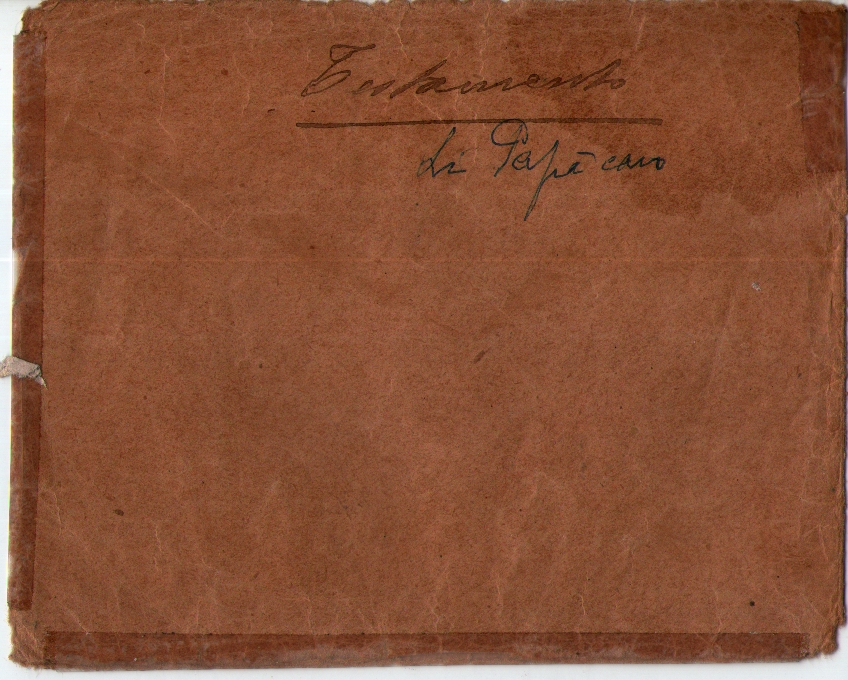 Testamento
di Papà caro